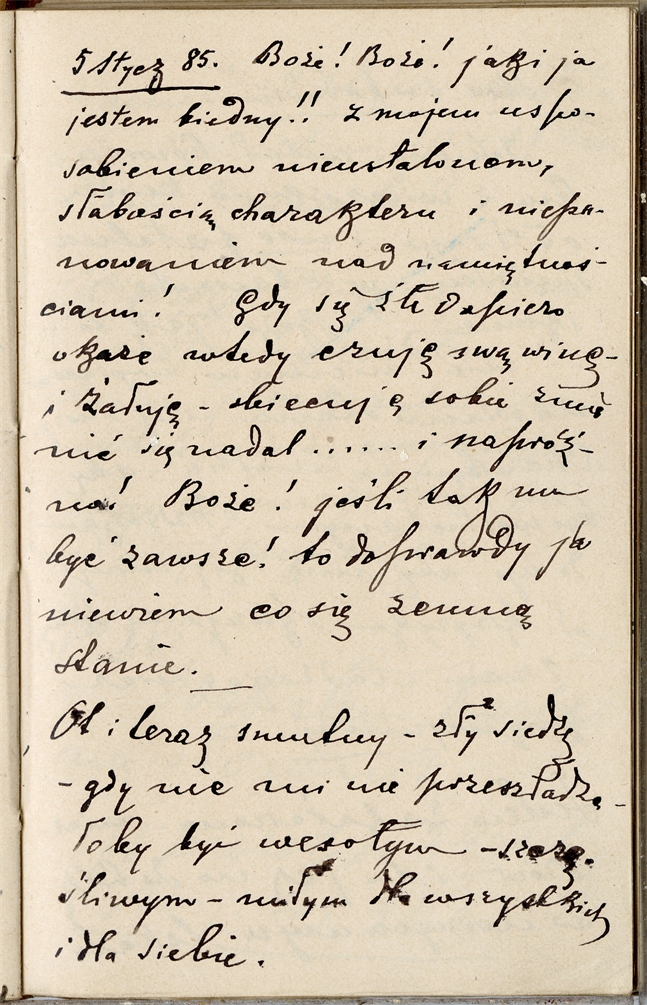 5 Stycz 85. Boże! Boże! jaki ja
jestem biedny!! Z mojem uspo-
sobieniem nieustalonem,
słabością charakteru i niepa-
nowaniem nad namiętnoś-
ciami! Gdy się źle dopiero
okaże wtedy czuję swą winę-
i żałuję - obiecuję sobie zmie
nić się nadal ...... i napróż-
no! Boże! jeśli tak ma
być zawsze! to doprawdy ja
niewiem co się zemną
stanie.
Ot i teraz smutny - zły siedzę
- gdy nic mi nie przeszkadza-
łoby być wesołym - szczę-
śliwym - miłym dla wszystkich
i dla siebie.